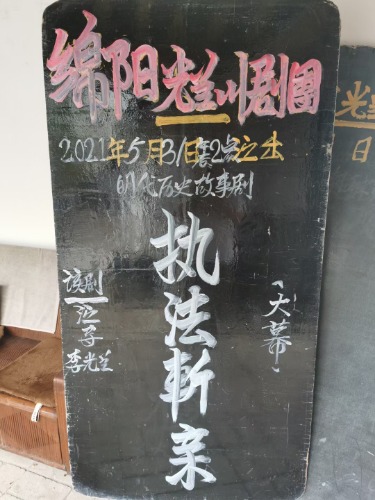 绵阳光兰川剧團
2021年5月31日晚2点之出
明代历史故事剧
执法斩亲
(大幕)
该剧
江子
李光兰
光兰
日